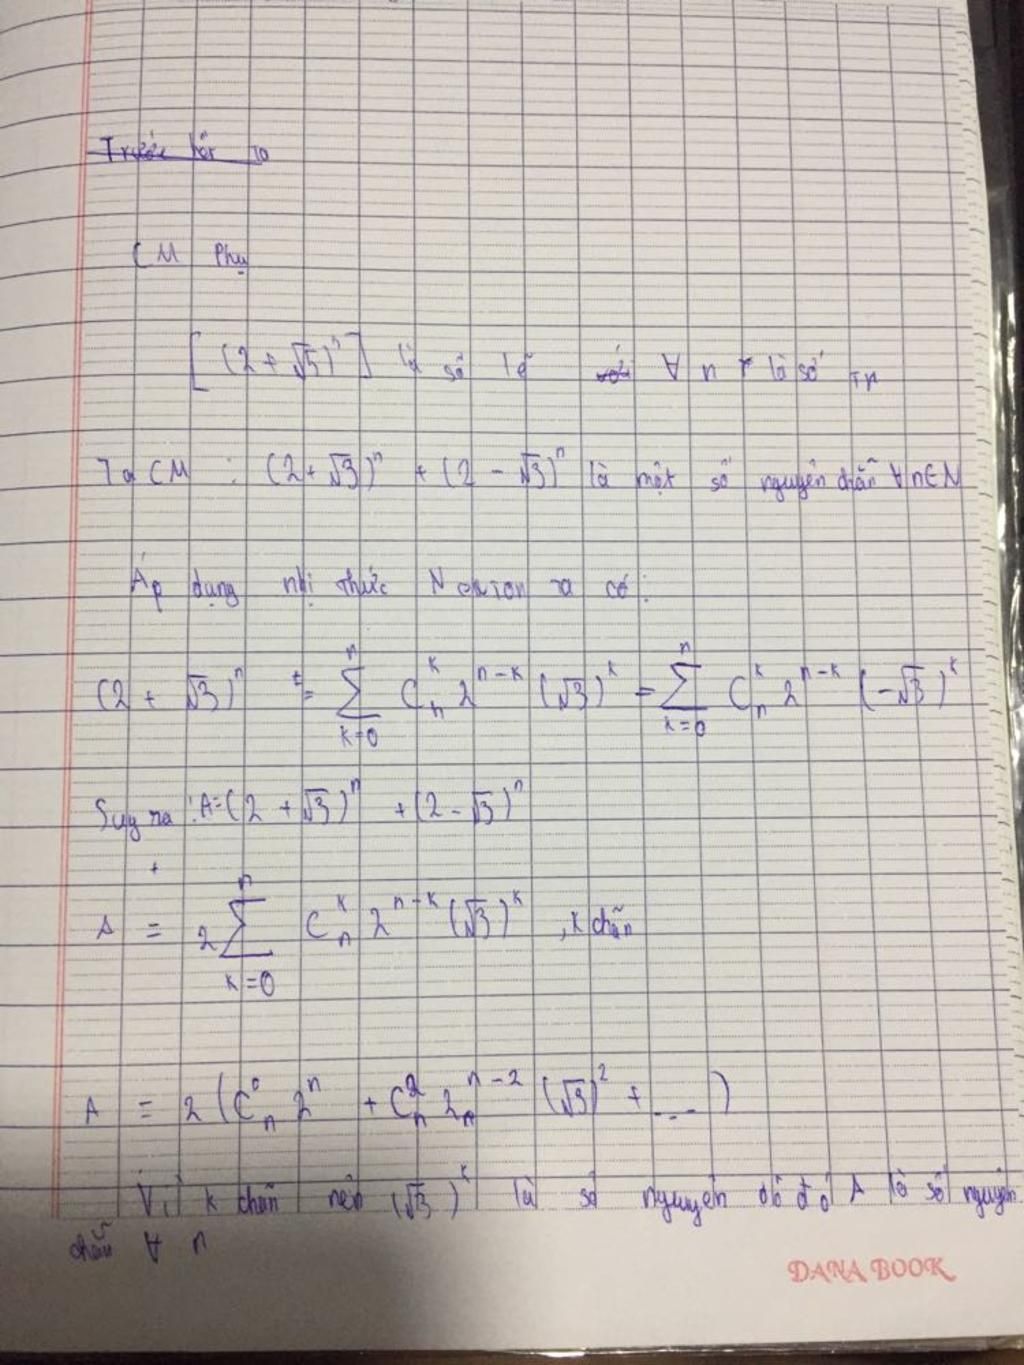 Trước hết ta
CM Phụ
[(2 + √3)ⁿ] là số lẻ với ∀ n là số TN
Ta CM : (2 + √3)ⁿ + (2 - √3)ⁿ là một số nguyên chẵn ∀ n ∈ N
Áp dụng nhị thức Newton ta có :
(2 + √3)ⁿ = ∑ₖ₌₀ⁿ Cₙᵏ 2ⁿ⁻ᵏ (√3)ᵏ = ∑ₖ₌₀ⁿ Cₙᵏ 2ⁿ⁻ᵏ (-√3)ᵏ
Suy ra : A = (2 + √3)ⁿ + (2 - √3)ⁿ
+
A = 2∑ₖ₌₀ⁿ Cₙᵏ 2ⁿ⁻ᵏ (√3)ᵏ , k chẵn
A = 2 (Cₙ⁰ 2ⁿ + Cₙ² 2ⁿ⁻² (√3)² + ...)
Vì k chẵn nên (√3)ᵏ là số nguyên do đó A là số nguyên
chẵn ∀ n
DANA BOOK